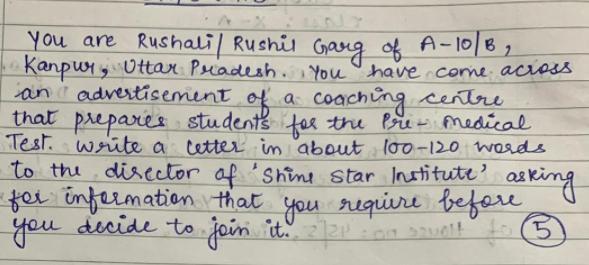 You are Rushali/ Rushil Garg of A-10/B,
Kanpur, Uttar Pradesh. You have come across
an advertisement of a coaching centre
that prepares students for the Pre-Medical
Test. Write a letter in about 100-120 words
to the director of 'Shine Star Institute' asking
for information that you require before
you decide to join it. (5)